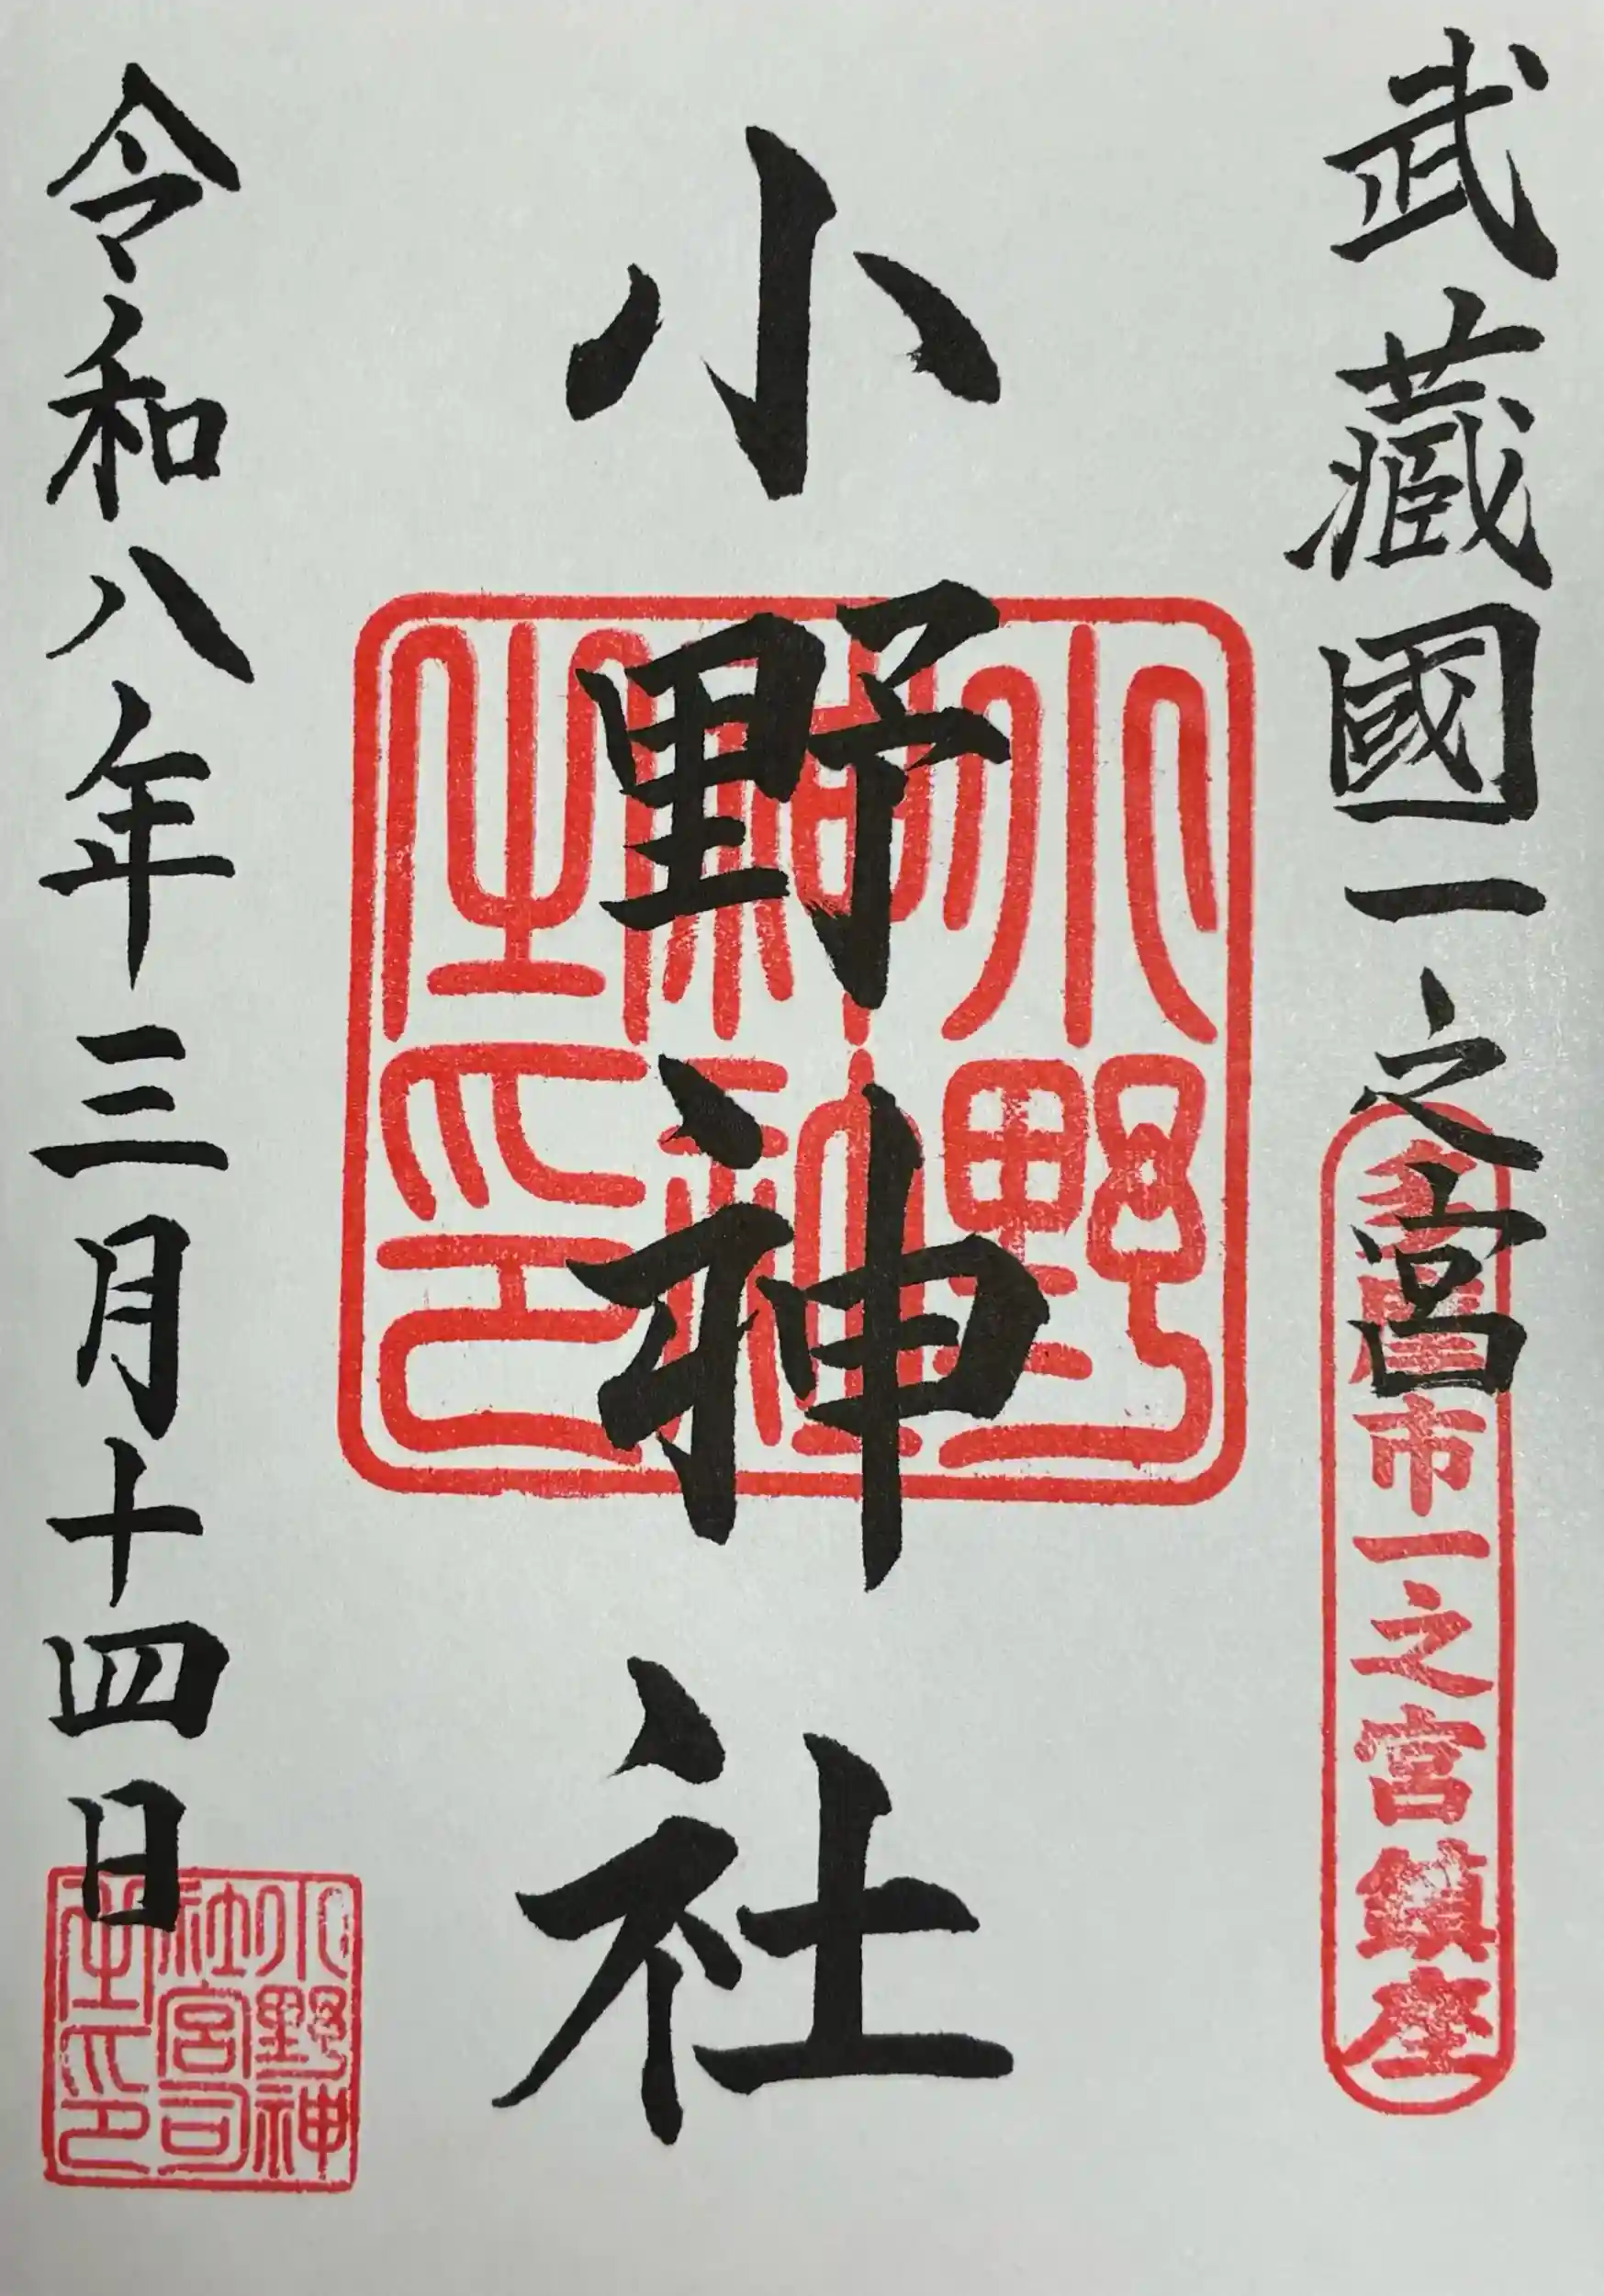 武藏國一之宮
多摩市一之宮鎮座
小野神社
小野神社之印
令和八年三月十四日
小野神社宮司之印